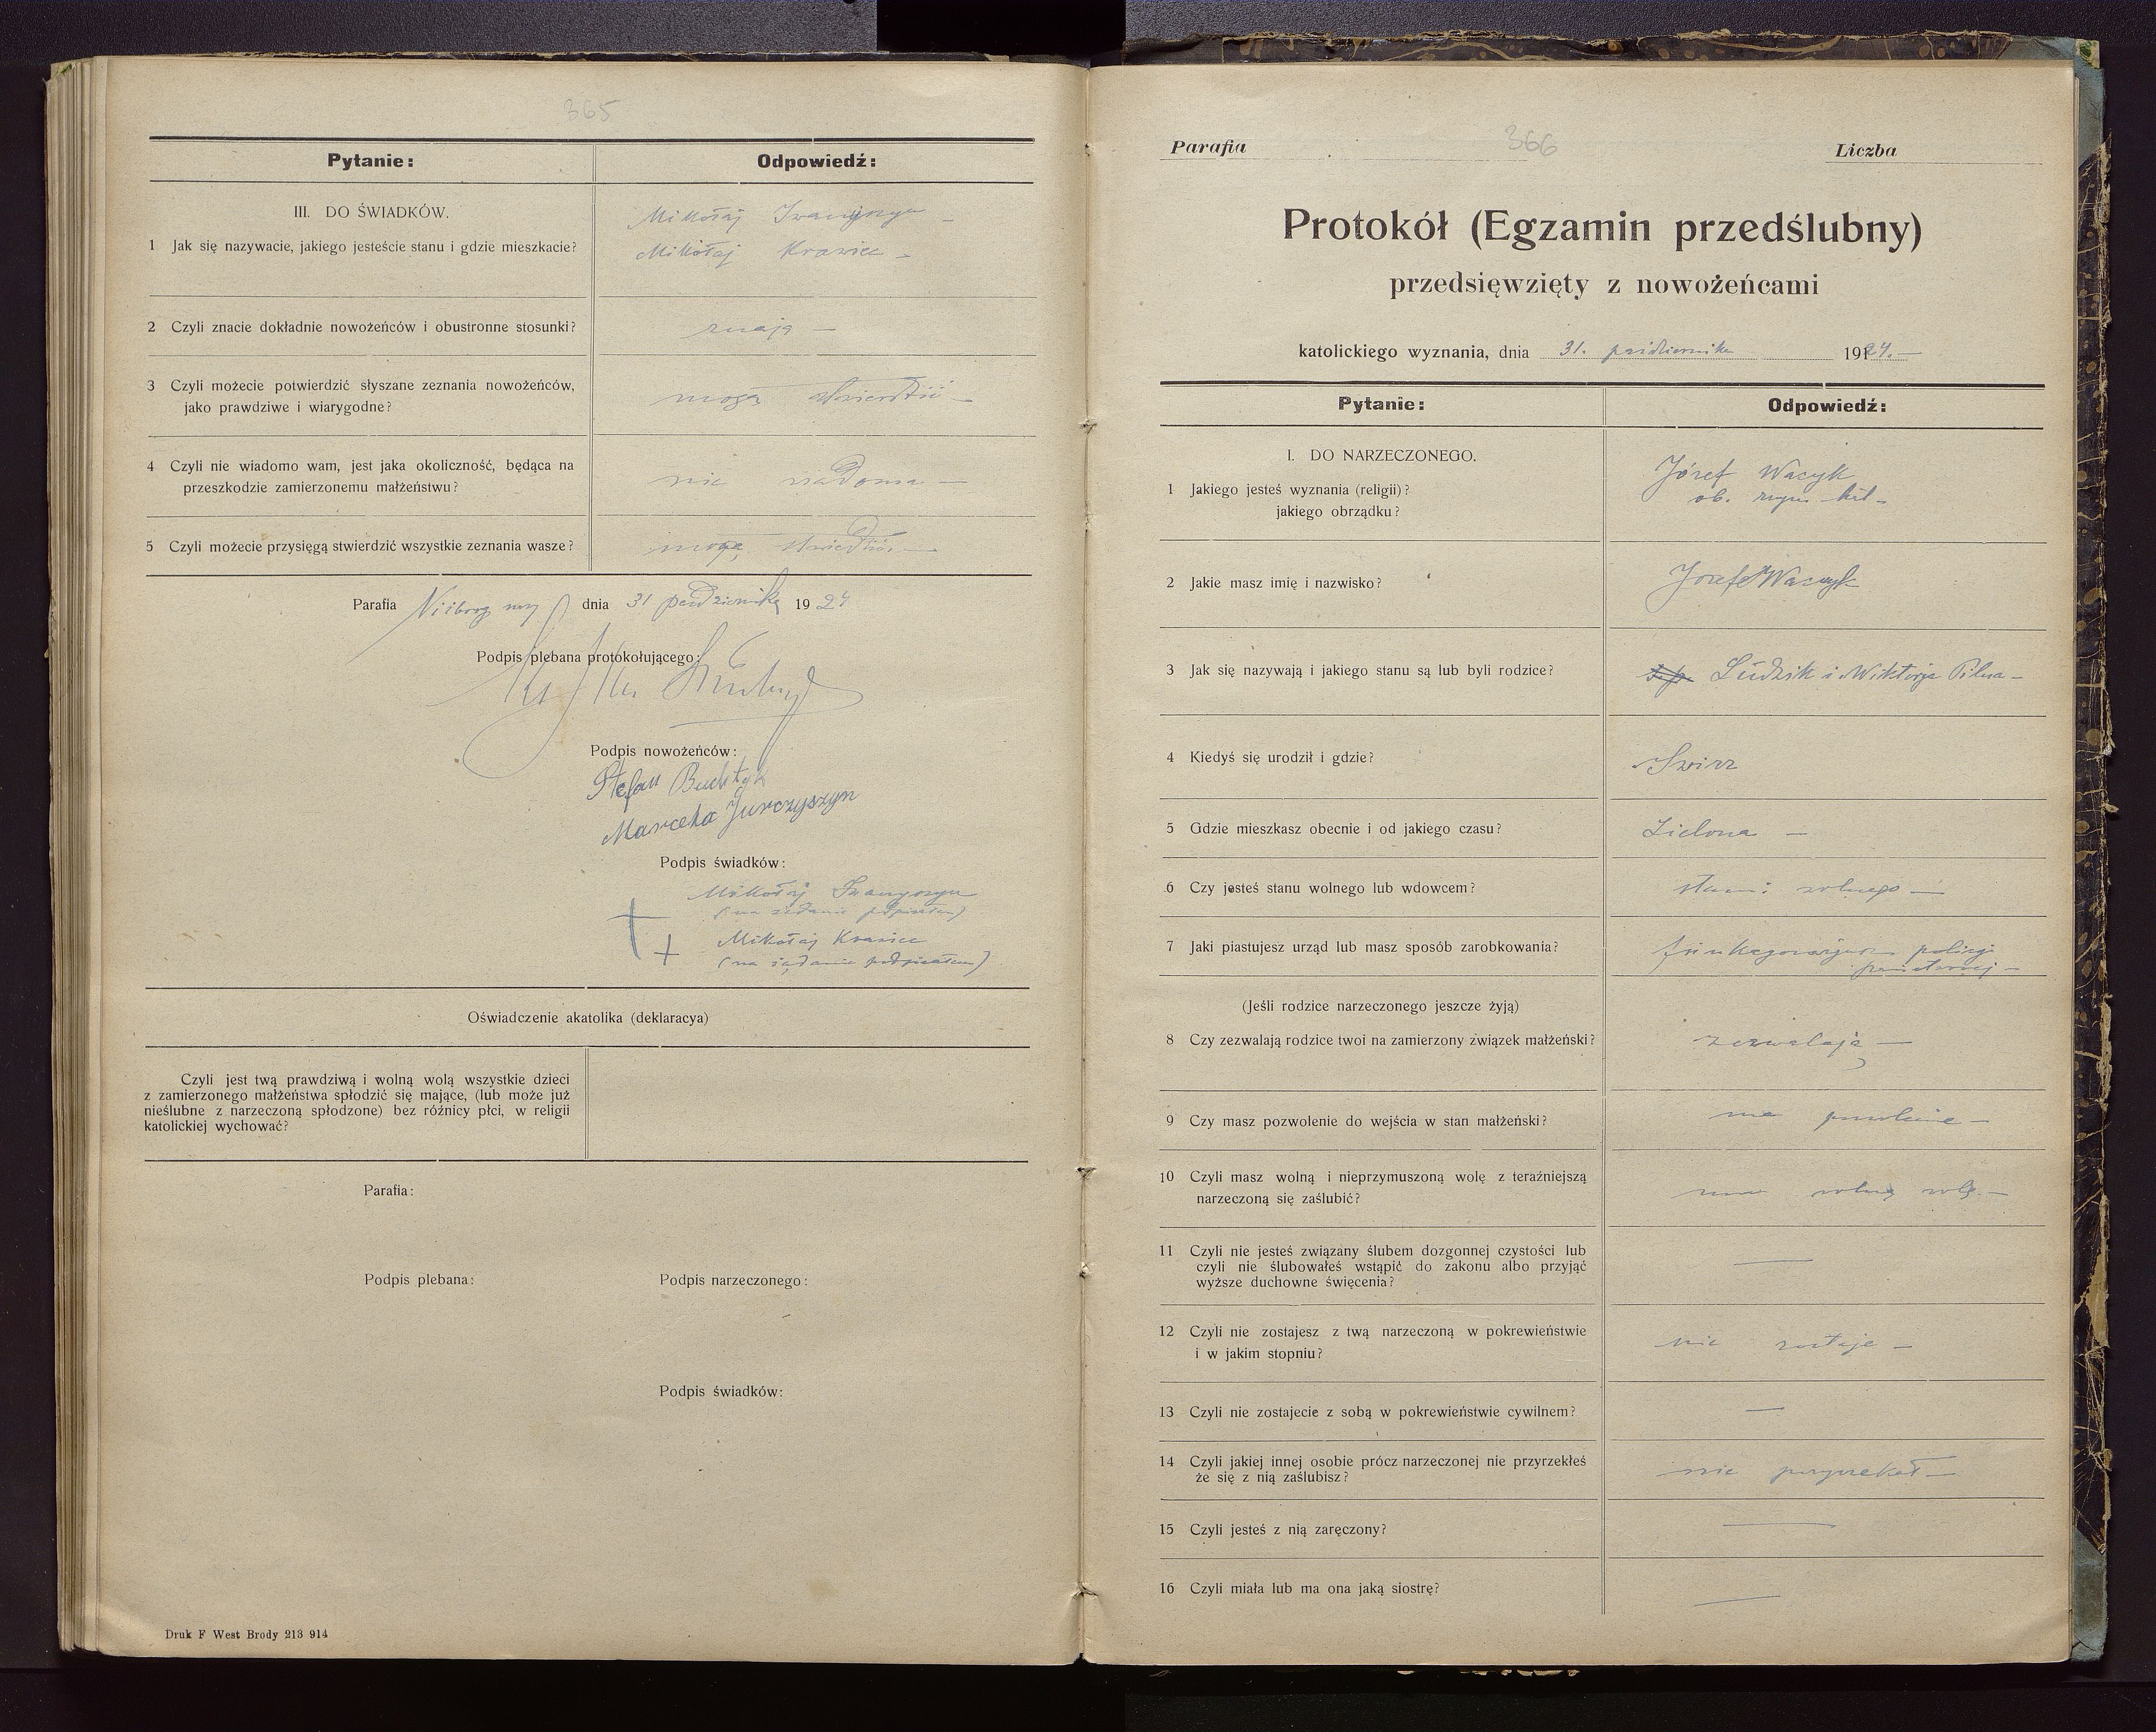 365
Pytanie:
Odpowiedź:
III. DO ŚWIADKÓW.
1 Jak się nazywacie, jakiego jesteście stanu i gdzie mieszkacie?
Mikołaj Iwanyszyn –
Mikołaj Krawiec –
2 Czyli znacie dokładnie nowożeńców i obustronne stosunki?
znają –
3 Czyli możecie potwierdzić słyszane zeznania nowożeńców,
jako prawdziwe i wiarygodne?
mogą –
4 Czyli nie wiadomo wam, jest jaka okoliczność, będąca na
przeszkodzie zamierzonemu małżeństwu?
nie wiadomo –
5 Czyli możecie przysięgą stwierdzić wszystkie zeznania wasze?
mogą –
Parafia dnia 31 października 1924
Podpis plebana protokołującego:
Podpis nowożeńców:
Stefan
Marcela Jurczyszyn
Podpis świadków:
Mikołaj Iwanyszyn
(na żądanie podpisałem)
Mikołaj Krawiec
(na żądanie podpisałem)
Oświadczenie akatolika (deklaracya)
Czyli jest twą prawdziwą i wolną wolą wszystkie dzieci
z zamierzonego małżeństwa spłodzić się mające, (lub może już
nieślubne z narzeczoną spłodzone) bez różnicy płci, w religii
katolickiej wychować?
Parafia:
Podpis plebana:
Podpis narzeczonego:
Podpis świadków:
Druk F West Brody 213 914
Parafia
366
Liczba
Protokół (Egzamin przedślubny)
przedsięwzięty z nowożeńcami
katolickiego wyznania, dnia 31. października 1924. –
Pytanie:
Odpowiedź:
I. DO NARZECZONEGO.
1 Jakiego jesteś wyznania (religii)?
jakiego obrządku?
Józef Wacyk
ob. rzym kat –
2 Jakie masz imię i nazwisko?
Józef Wacyk
3 Jak się nazywają i jakiego stanu są lub byli rodzice?
Ludwik i Wiktorja Pilna –
4 Kiedyś się urodził i gdzie?
Swirz
5 Gdzie mieszkasz obecnie i od jakiego czasu?
Zielona –
6 Czy jesteś stanu wolnego lub wdowcem?
stanu wolnego –
7 Jaki piastujesz urząd lub masz sposób zarobkowania?
funkcyonarjusz policji
państwowej –
(Jeśli rodzice narzeczonego jeszcze żyją)
8 Czy zezwalają rodzice twoi na zamierzony związek małżeński?
zezwalają –
9 Czy masz pozwolenie do wejścia w stan małżeński?
ma pozwolenie –
10 Czyli masz wolną i nieprzymuszoną wolę z teraźniejszą
narzeczoną się zaślubić?
ma wolną wolę. –
11 Czyli nie jesteś związany ślubem dozgonnej czystości lub
czyli nie ślubowałeś wstąpić do zakonu albo przyjąć
wyższe duchowne święcenia?
—
12 Czyli nie zostajesz z twą narzeczoną w pokrewieństwie
i w jakim stopniu?
nie zostaje –
13 Czyli nie zostajecie z sobą w pokrewieństwie cywilnem?
—
14 Czyli jakiej innej osobie prócz narzeczonej nie przyrzekłeś
że się z nią zaślubisz?
nie przyrzekał –
15 Czyli jesteś z nią zaręczony?
—
16 Czyli miała lub ma ona jaką siostrę?
—